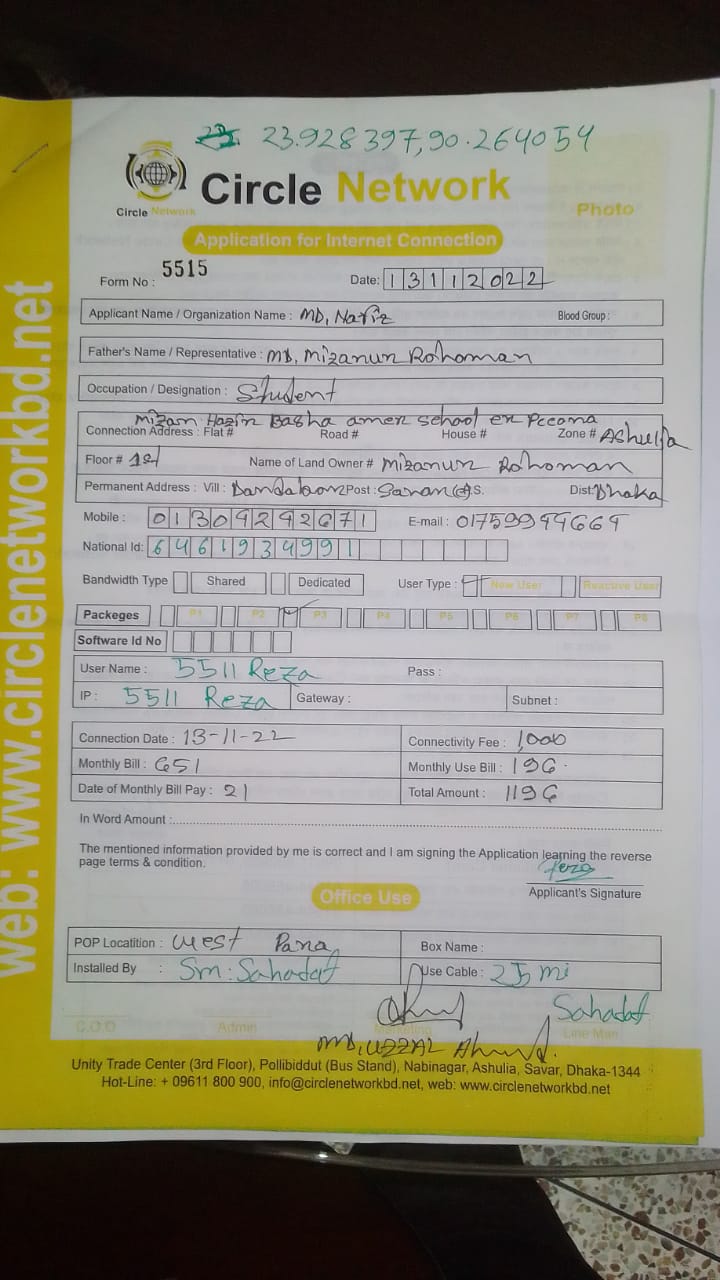 23.928397,90.264054
Circle Network
Circle Network
Photo
Application for Internet Connection
Form No : 5515
Date: 13112022
Applicant Name / Organization Name : MD, Nafiz
Blood Group :
Father's Name / Representative : MD, Mizanur Rohoman
Occupation / Designation : Student
Mizan Hazir Basha amer school er
Connection Address : Flat # Road # House # Zone # Ashulia
Floor # 1st Name of Land Owner # Mizanur Rohoman
Permanent Address : Vill : Post : P.S. Dist: Dhaka
Mobile : 01309292671 E-mail : 01759999669
National Id: 6461934991
Bandwidth Type Shared Dedicated User Type : New User Reactive User
Packeges P1 P2 P3 P4 P5 P6 P7 P8
Software Id No
User Name : 5511 Reza Pass :
IP : 5511 Reza Gateway : Subnet :
Connection Date : 13-11-22 Connectivity Fee : 1,000
Monthly Bill : 651 Monthly Use Bill : 196
Date of Monthly Bill Pay : 21 Total Amount : 1196
In Word Amount :
The mentioned information provided by me is correct and I am signing the Application learning the reverse
page terms & condition.
Reza
Applicant's Signature
Office Use
POP Locatition : west Para Box Name :
Installed By : Sm: Sahadat Use Cable : 25 mi
Sahadat
C.O.O Admin Marketing Line Man
MD, UZZAL Ahmed.
Unity Trade Center (3rd Floor), Pollibiddut (Bus Stand), Nabinagar, Ashulia, Savar, Dhaka-1344
Hot-Line: + 09611 800 900, info@circlenetworkbd.net, web: www.circlenetworkbd.net
web: www.circlenetworkbd.net